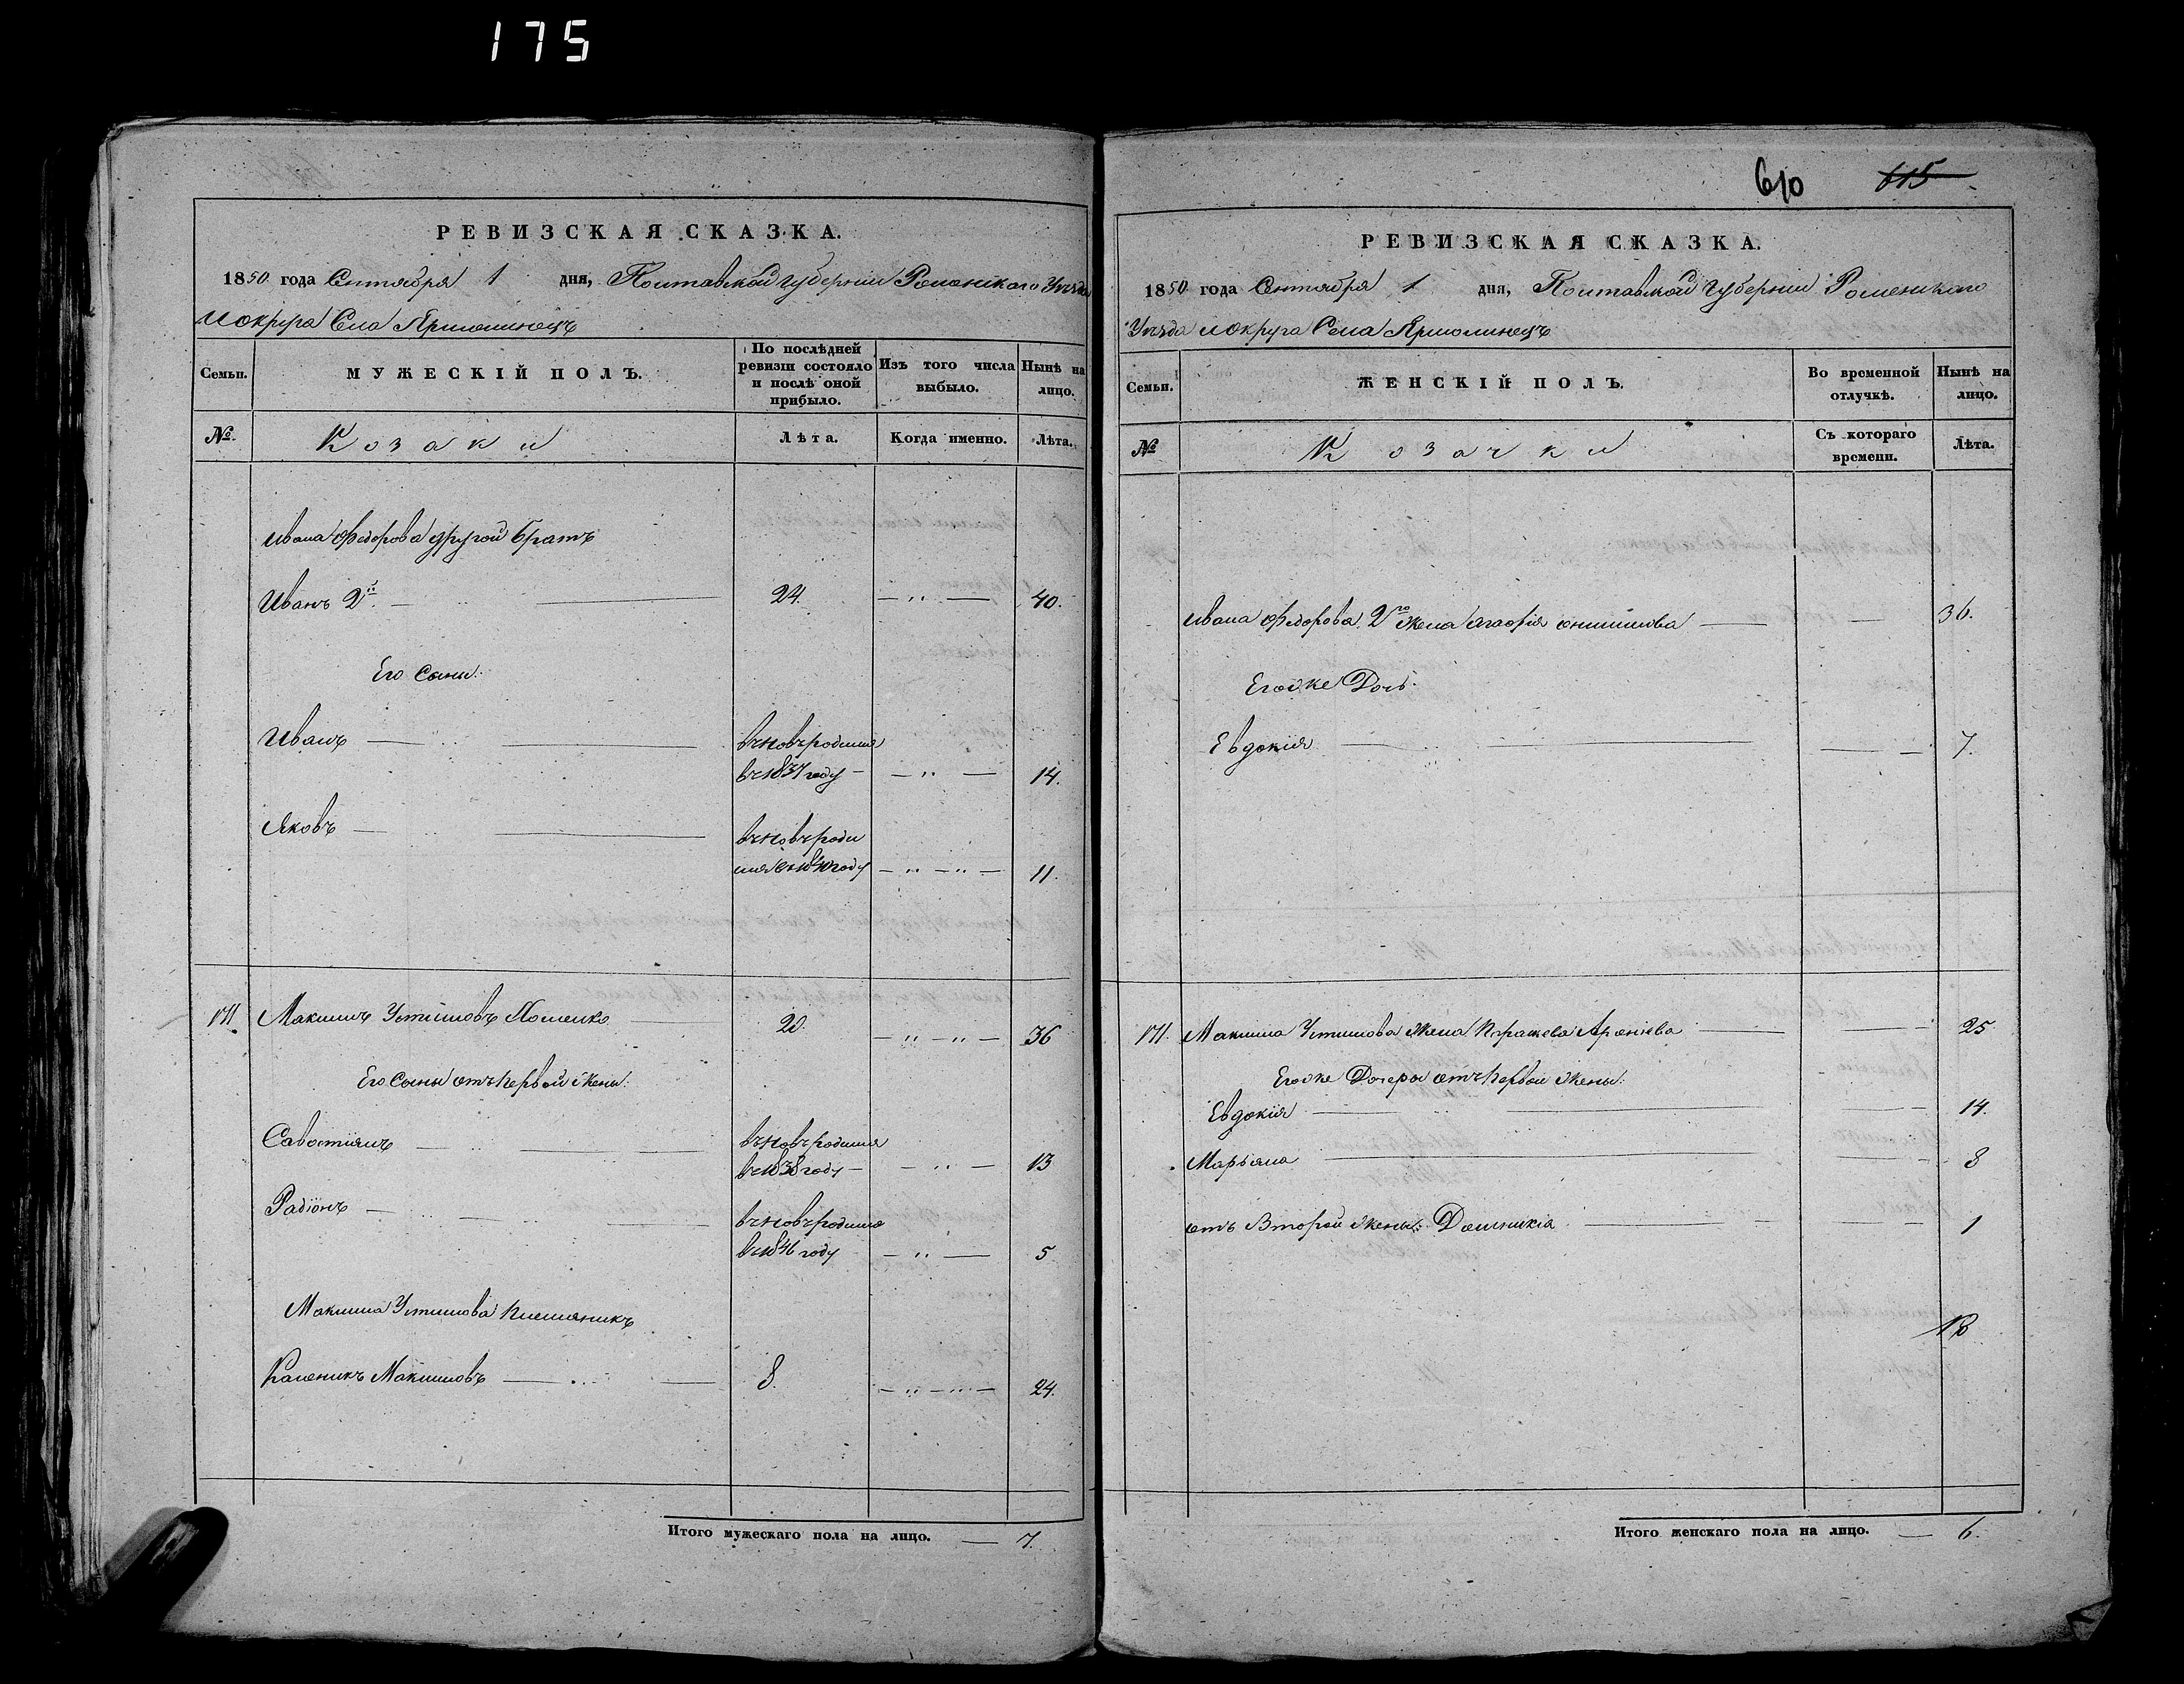 175
РЕВИЗСКАЯ СКАЗКА.
1850 года Сентября 1 дня, Полтавской губернии Роменского Уезда
и округа Села Ярмолинец
Семьи.
МУЖЕСКІЙ ПОЛЪ.
По послѣдней ревизіи состояло и послѣ оной прибыло.
Изъ того числа выбыло.
Нынѣ на лицо.
№.
Козаки
Лѣта.
Когда именно.
Лѣта.
Ивана Федорова другой братъ
Иванъ 2й. 24. 40.
Его Сыны:
Иванъ вновьродился
в 1837 году 14.
Яковъ вновьроди
лся в 1840 году 11.
171. Максимъ Устимовъ 20. 36
Его Сыны отъ первой жены:
Савостіянъ вновьродился
в 1838 году 13
Радіонъ вновьродился
в 1846 году 5
Максима Устимова племяникъ
Каленикъ Максимовъ 8. 24.
Итого мужескаго пола на лицо. 7.
610 615
РЕВИЗСКАЯ СКАЗКА.
1850 года Сентября 1 дня, Полтавской губернии Роменскаго
Уезда и округа Села Ярмолинецъ
Семьи.
ЖЕНСКІЙ ПОЛЪ.
Во временной отлучкѣ.
Нынѣ на лицо.
№
Козачки
Съ котораго времени.
Лѣта.
Ивана Федорова 2го жена Агафія 36.
Егоже Дочь:
Евдокія 7.
171. Максима Устимова жена 25
Егоже Дочеры отъ первой жены:
Евдокія 14.
Марьяна 8
отъ Второй жены: Домникія 1
Итого женскаго пола на лицо. 6.